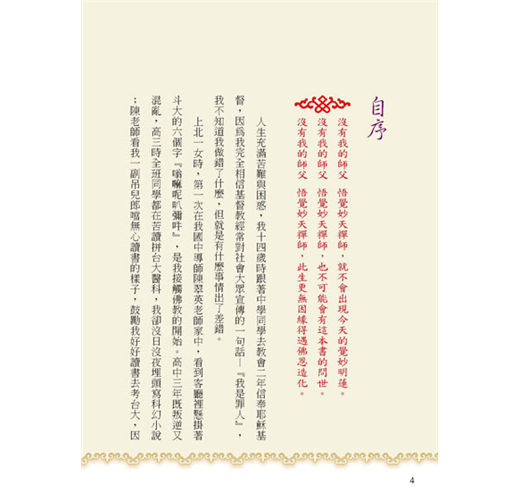 自序
沒有我的師父 悟覺妙天禪師，就不會出現今天的覺妙明蓮。
沒有我的師父 悟覺妙天禪師，也不可能會有這本書的問世。
沒有我的師父 悟覺妙天禪師，此生更無因緣得遇佛恩造化。
人生充滿苦難與困惑，我十四歲時跟著中學同學去教會二年信奉耶穌基
督，因為我完全相信基督教經常對社會大眾宣傳的一句話—『我是罪人』，
我不知道我做錯了什麼，但就是有什麼事情出了差錯。
上北一女時，第一次在我國中導師陳翠英老師家中，看到客廳裡懸掛著
斗大的六個字『嗡嘛呢叭彌吽』，是我接觸佛教的開始。高中三年既叛逆又
混亂，高三時全班同學都在苦讀拼台大醫科，我卻沒日沒夜埋頭寫科幻小說
；陳老師看我一副吊兒郎噹無心讀書的樣子，鼓勵我好好讀書去考台大，因
4